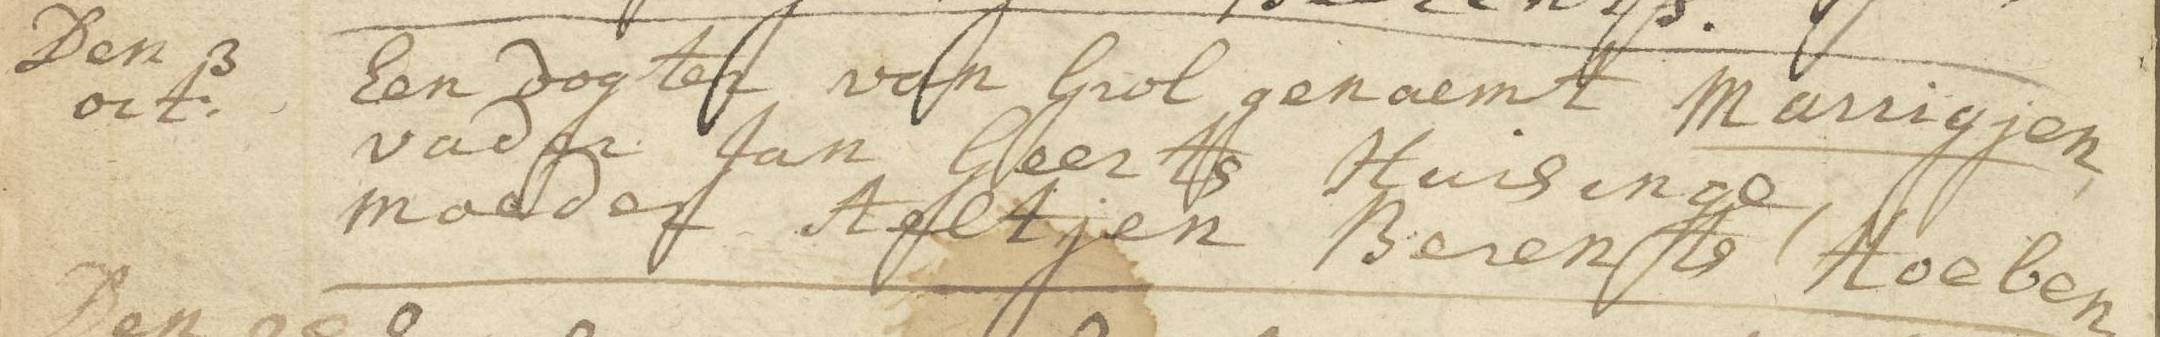 Den 3 Een dogter van Grol genaemt Marrigjen,
oct. vader Jan Geerts Huisinge,
moeder Aeltjen Berents Hoeben
Den